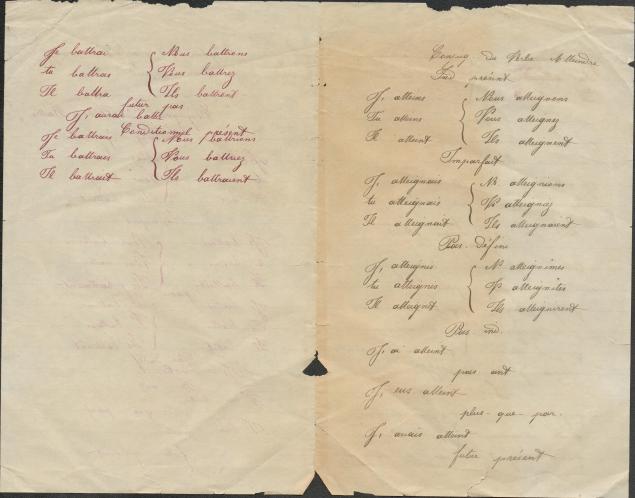 Je battrai { Nous battrons
tu battras { Vous battrez
Il battra { Ils battront
futur pas
J, aurai batt
Conditionnel présent
Je battrais { Nous battrions
Tu battrais { Vous battriez
Il battrait { Ils battraient
Conjug du Verbe Atteindre
Ind présent
J, atteins { Nous atteignons
Tu atteins { Vous atteignez
Il atteint { Ils atteignent
Imparfait
J, atteignais { Ns atteignions
tu atteignais { Vs atteigniez
Il atteignait { Ils atteignaient
Pas. défini
J, atteignis { Ns atteignîmes
tu atteignis { Vs atteignîtes
Il atteignit { Ils atteignirent
Pas ind.
J, ai atteint
pas ant
J, eus atteint
plus-que-par.
J, avais atteint
futur présent